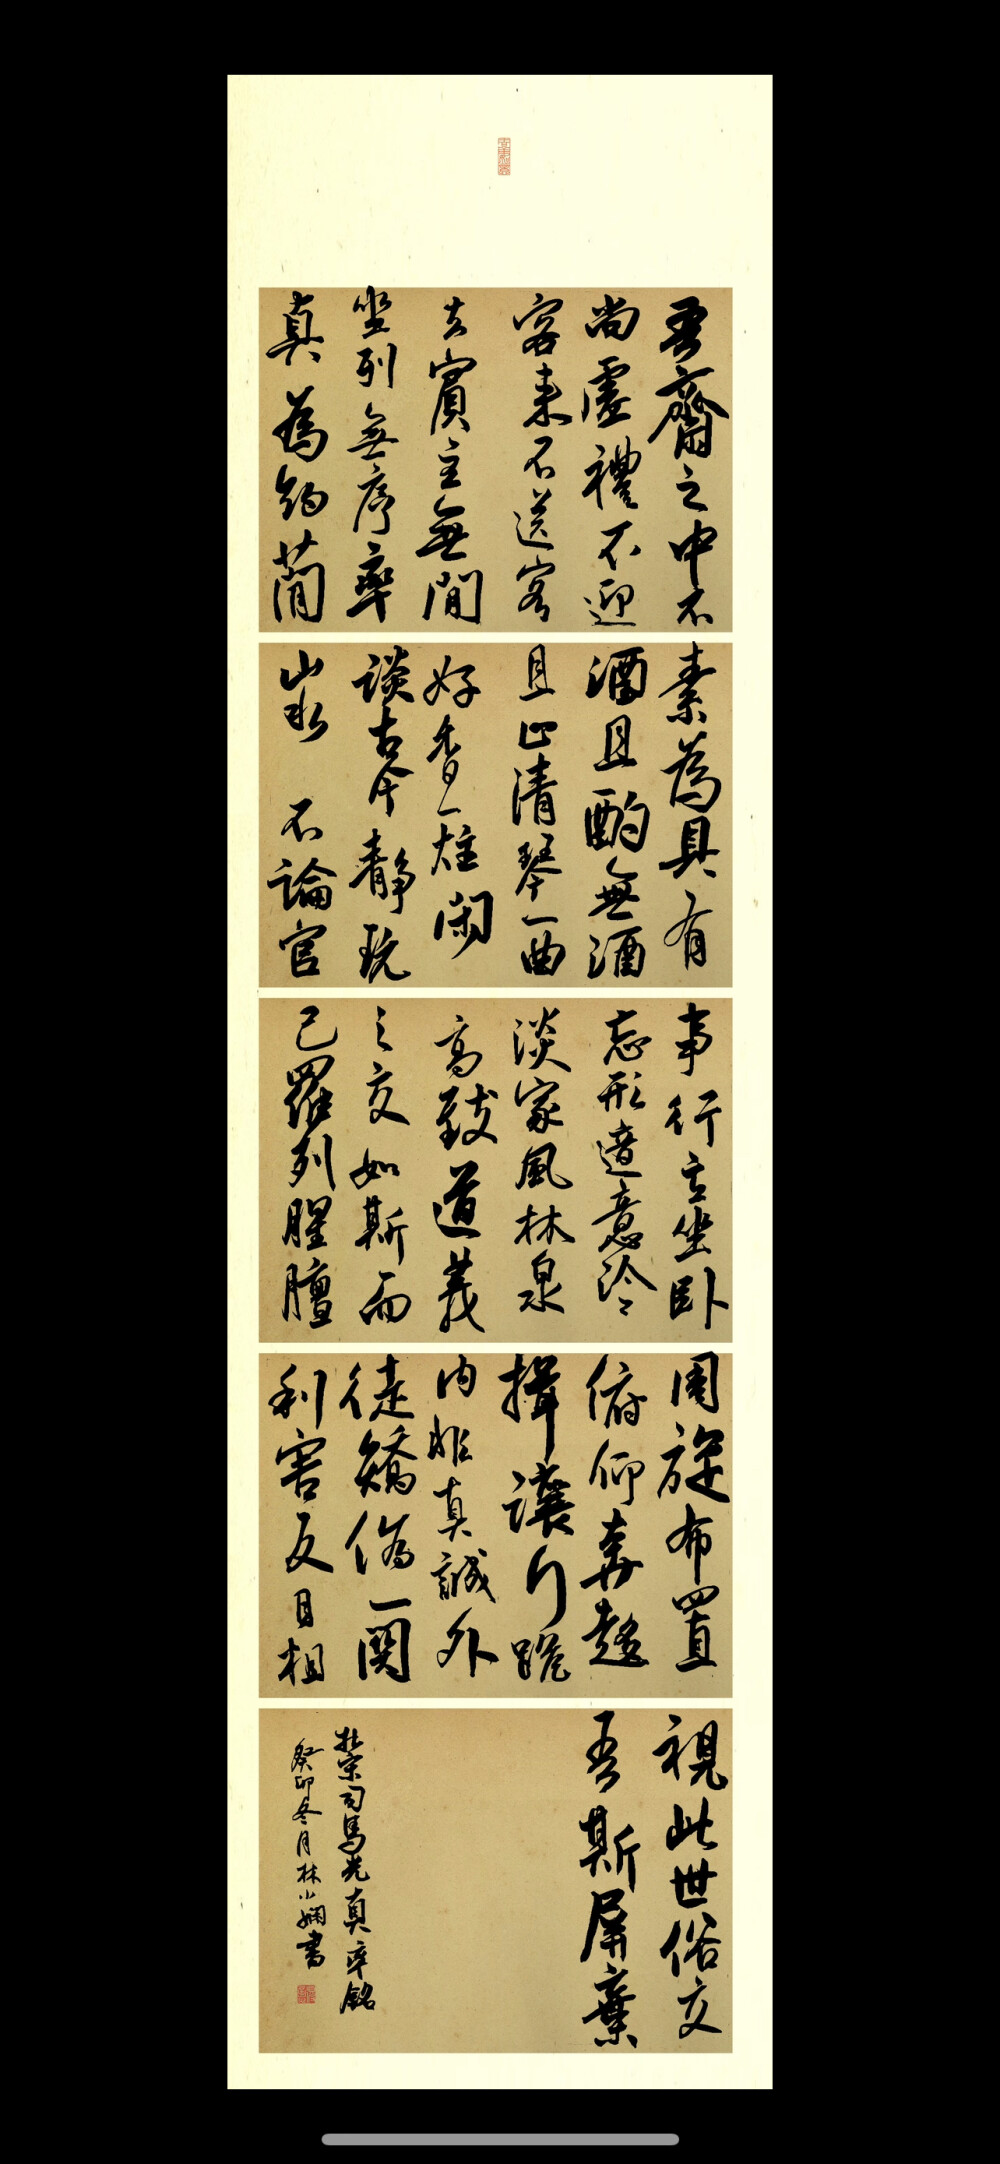 吾齋之中不
尚虛禮不迎
客来不送客
去賓主無間
坐列無序率
真為約蕳
素為具有
酒且酌無酒
且止清琴一曲
好香一炷闲
談古今静玩
山水不論官
事行立坐卧
忘形適意泠々
淡家風林泉
高致道義
之交如斯而
已羅列腥膻
周旋布置
俯仰奔趨
揖讓行跪
内非真誠外
徒矯偽一関
利害反目相
視此世俗交
吾斯屏棄
北宋司馬光真率銘
癸卯冬月林小嫻書